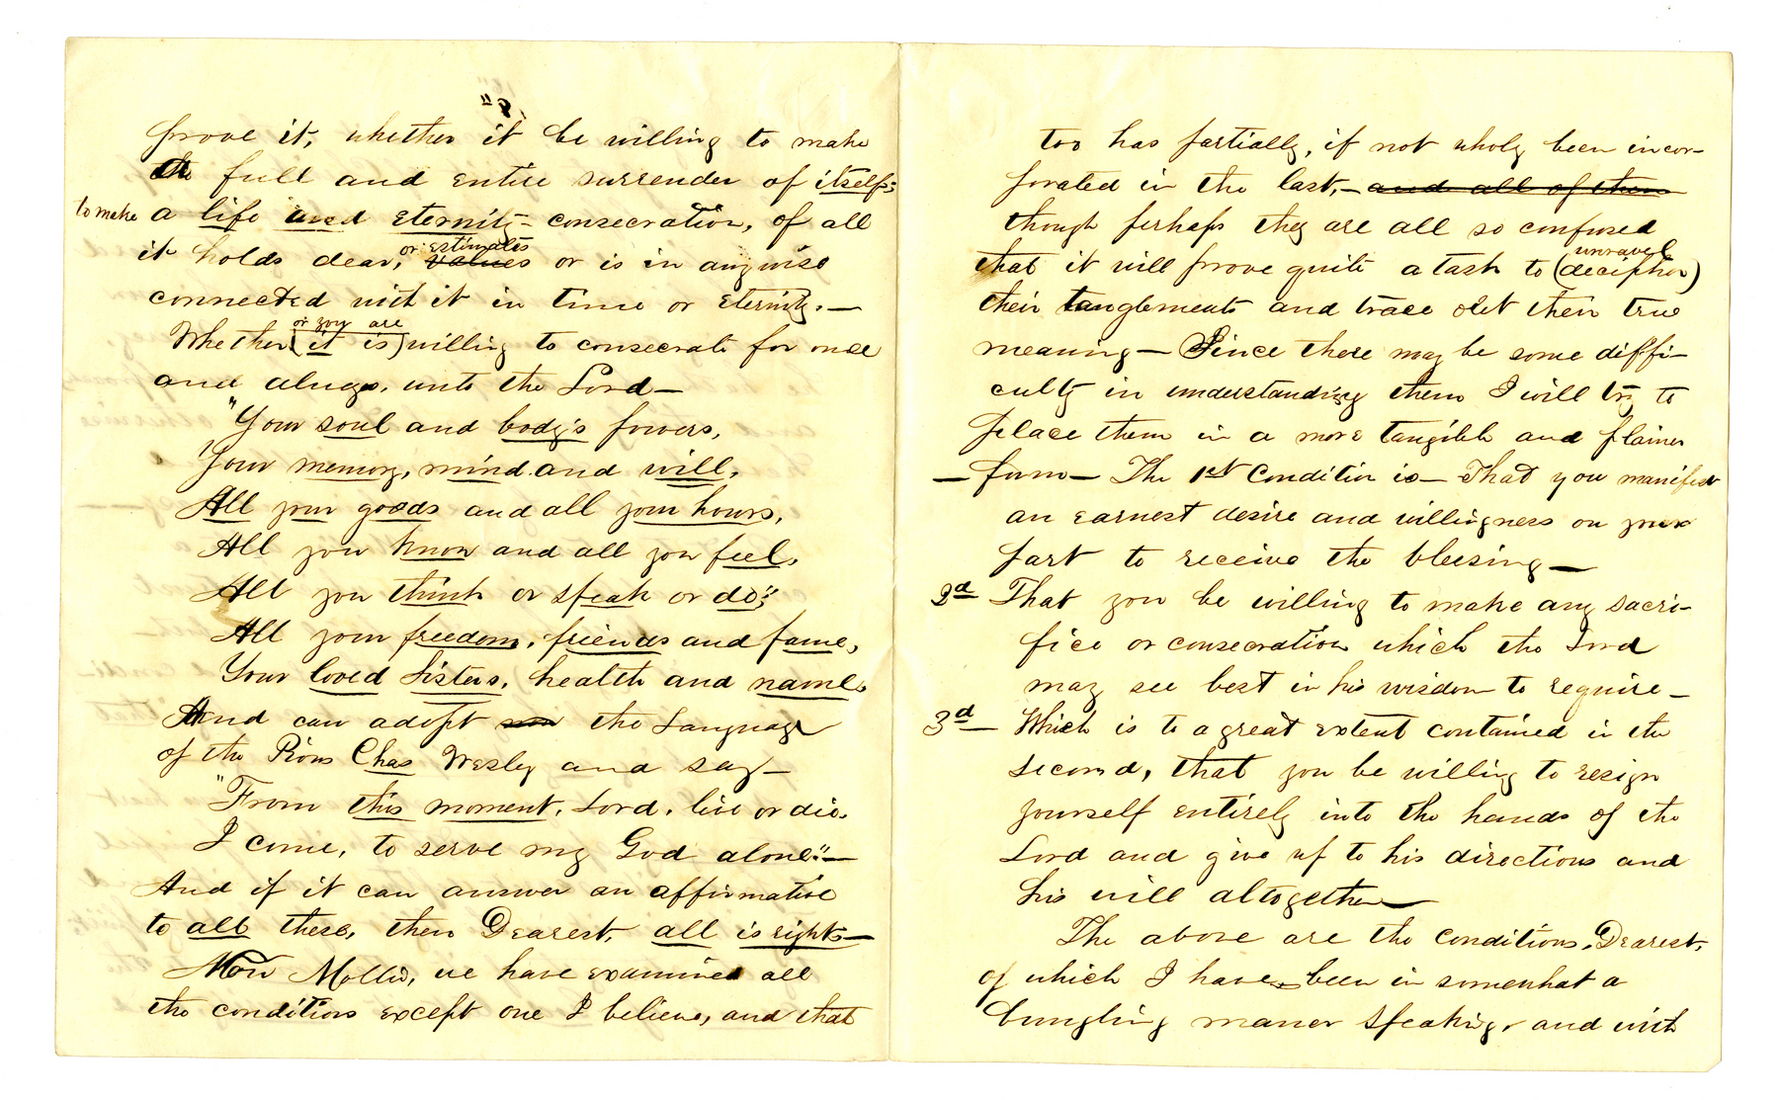 "8"
prove it, whether it be willing to make
the full and entire surrender of itself;
to make a life and eternity consecration, of all
it holds dear, or estimates values or is in anywise
connected with it in time or Eternity.—
Whether (it is) or you are willing to consecrate for once
and always, unto the Lord—
"Your soul and body's powers,
Your memory, mind and will,
All your goods and all your hours,
All you know and all you feel,
All you think or speak or do;"
All your freedom, friends and fame,
Your loved Sisters, health and name
And can adopt the Language
of the Pious Chas Wesley and say—
"From this moment, Lord, live or die,
I come, to serve my God alone."—
And if it can answer an affirmative
to all these, then Dearest, all is right—
Now Mollie, we have examined all
the conditions except one I believe, and that
too has partially, if not wholy been incor-
porated in the last,— and all of them
though perhaps they are all so confused
that it will prove quite a task to (decipher) unravel
their tanglements and trace out their true
meaning— Since there may be some diffi-
culty in understanding them I will try to
place them in a more tangible and plainer
—form— The 1st Condition is— That you manifest
an earnest desire and willingness on your
part to receive the blessing—
2d That you be willing to make any sacri-
fice or consecration which the Lord
may see best in his wisdom to require—
3d— Which is to a great extent contained in the
second, that you be willing to resign
yourself entirely into the hands of the
Lord and give up to his directions and
his will altogether—
The above are the conditions, Dearest,
of which I have been in somewhat a
bungling maner speaking, and with